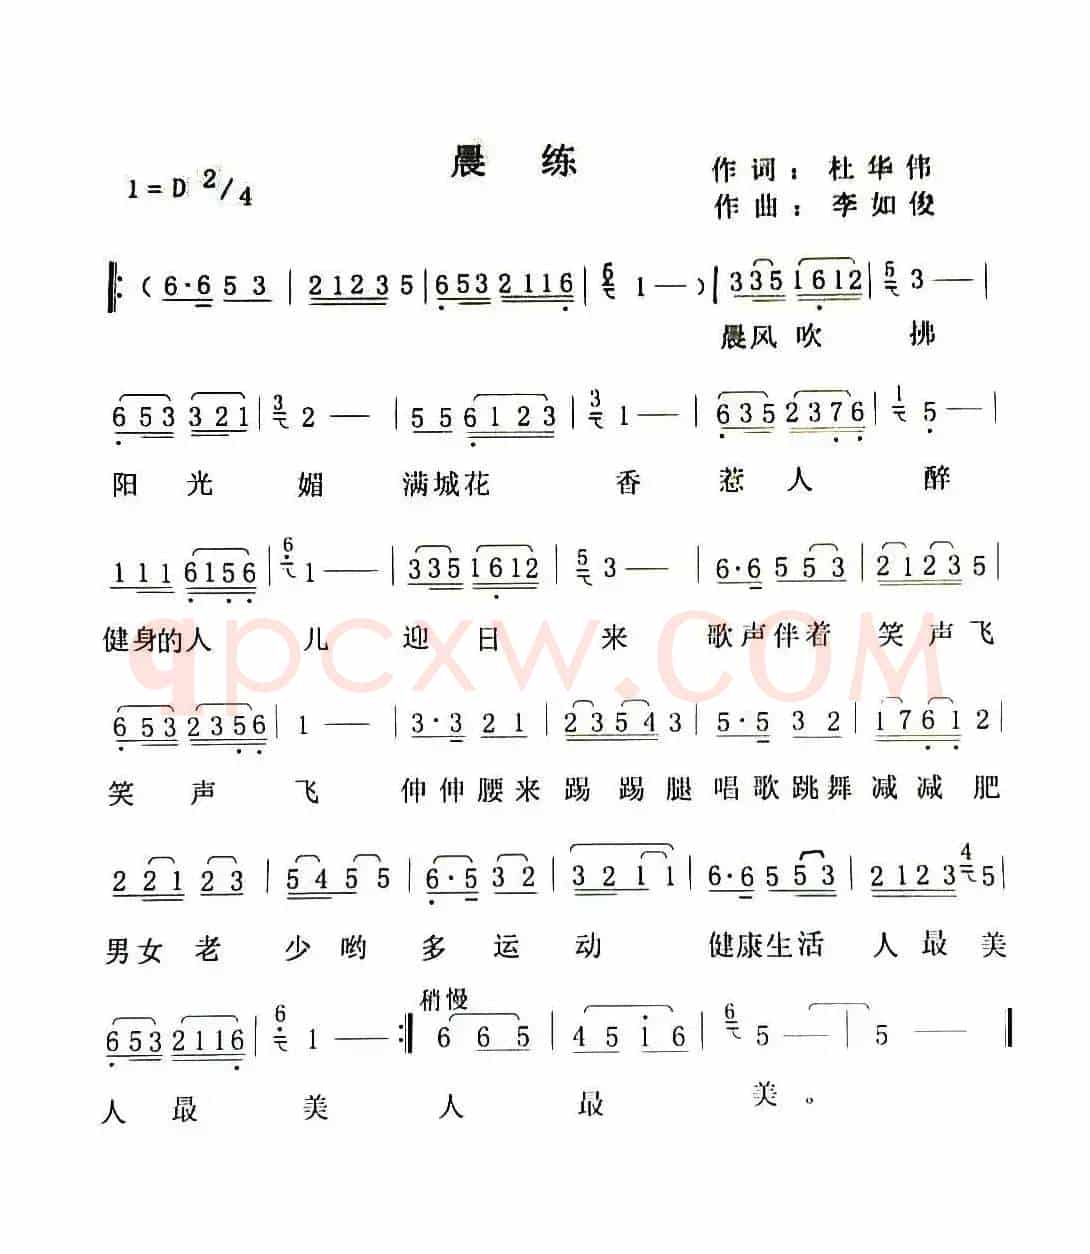 晨 练
1=D 2/4
作词：杜华伟
作曲：李如俊
（6·6 5 3 | 2 1 2 3 5 | 6 5 3 2 1 1 6 | 6 1 — ）| 3 3 5 1 6 1 2 | 5 3 — |
晨风 吹 拂
6 5 3 3 2 1 | 3 2 — | 5 5 6 1 2 3 | 3 1 — | 6 3 5 2 3 7 6 | 1 5 — |
阳 光 媚 满城花 香 惹 人 醉
1 1 1 6 1 5 6 | 6 1 — | 3 3 5 1 6 1 2 | 5 3 — | 6·6 5 5 3 | 2 1 2 3 5 |
健身的人 儿 迎 日 来 歌声伴着 笑 声 飞
6 5 3 2 3 5 6 | 1 — | 3·3 2 1 | 2 3 5 4 3 | 5·5 3 2 | 1 7 6 1 2 |
笑 声 飞 伸伸腰来 踢 踢 腿 唱歌跳舞 减 减 肥
2 2 1 2 3 | 5 4 5 5 | 6·5 3 2 | 3 2 1 1 | 6·6 5 5 3 | 2 1 2 3 4 5 |
男女 老 少 哟 多 运 动 健康生活 人 最 美
稍慢
6 5 3 2 1 1 6 | 6 1 — :| 6 6 5 | 4 5 1 6 | 6 5 — | 5 — |
人 最 美 人 最 美。
qpcxw.COM